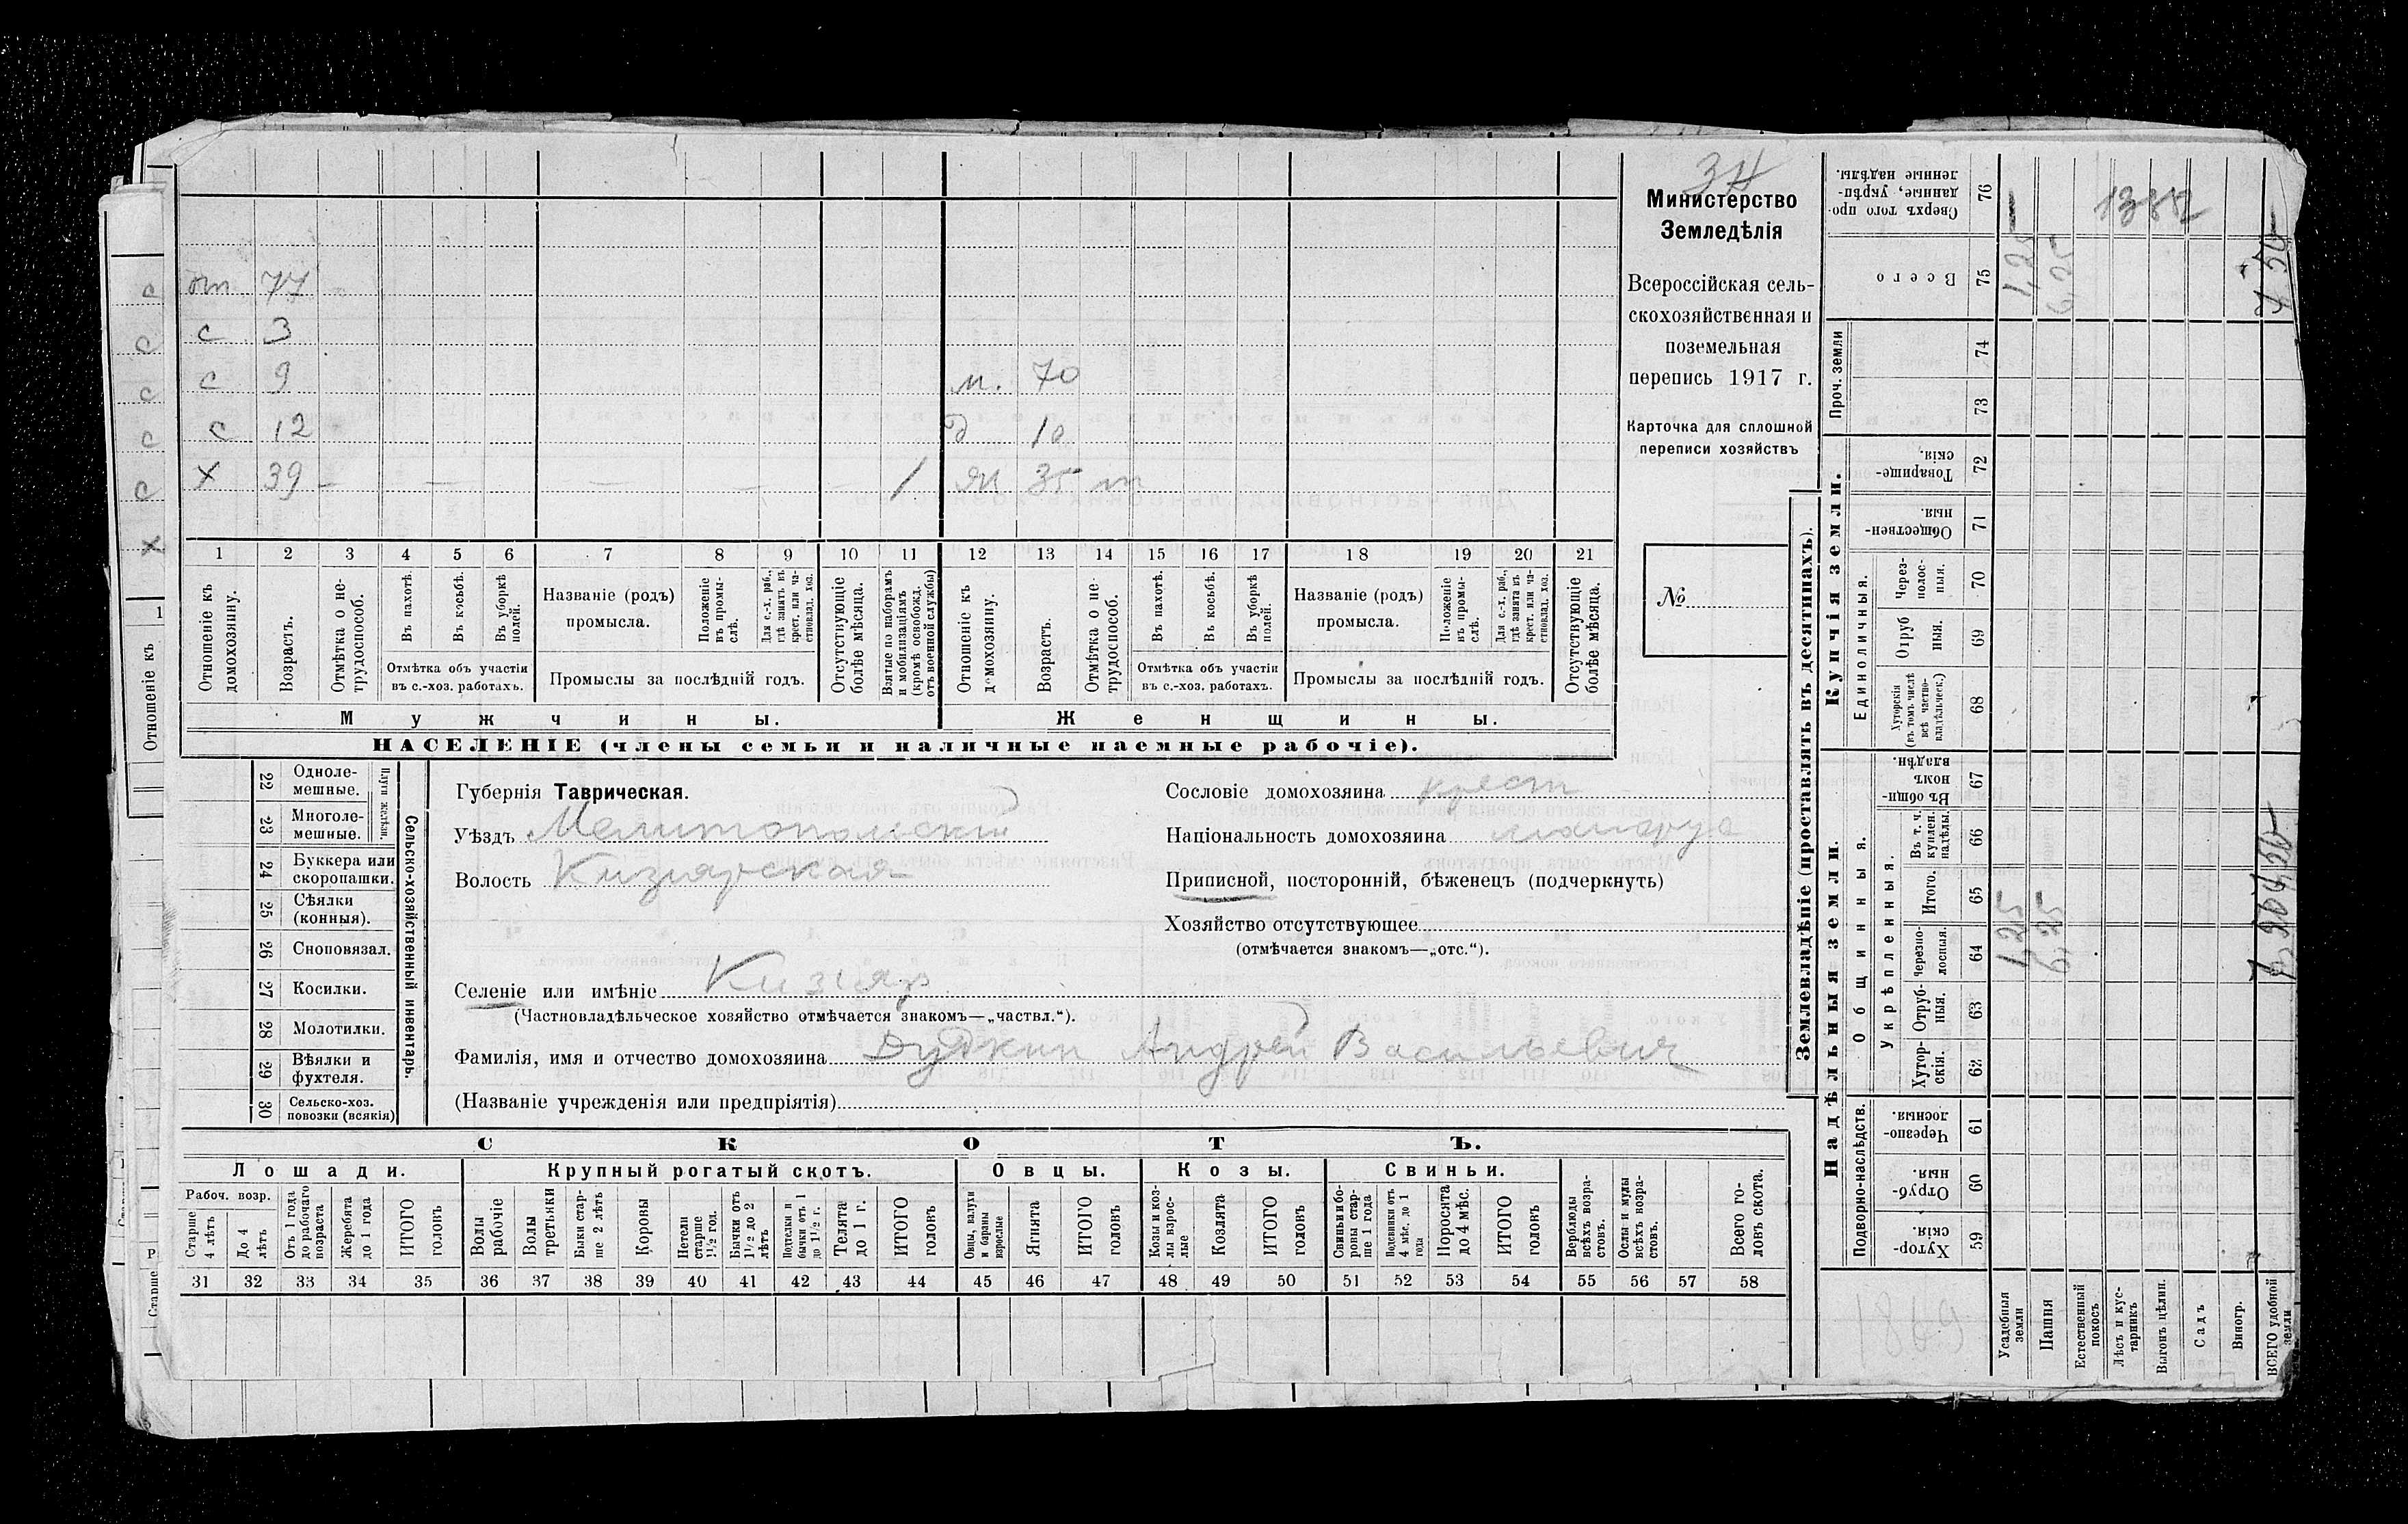 ЗН
Министерство
Земледѣлія
Всероссійская сель-
скохозяйственная и
поземельная
перепись 1917 г.
Карточка для сплошной
переписи хозяйствъ
№
от 77
с 3
с 9 м. 70
с 12 д 10
х 39 — — — — — 1 ж 35
1 2 3 4 5 6 7 8 9 10 11 12 13 14 15 16 17 18 19 20 21
Отношеніе къ домохозяину.
Возрастъ.
Отмѣтка о не-трудоспособ.
Въ пахотѣ.
Въ косьбѣ.
Въ уборкѣ полей.
Отмѣтка объ участіи
въ с.-хоз. работахъ.
Названіе (родъ)
промысла.
Положеніе въ промы-слѣ.
Для с.-х. раб., гдѣ занятъ въ крест. или ча-стновлад. хоз.
Промыслы за послѣдній годъ.
Отсутствующіе болѣе мѣсяца.
Взятые по наборамъ и мобилизаціямъ (кромѣ освобожд. отъ военной службы)
Отношеніе къ домохозяину.
Возрастъ.
Отмѣтка о не-трудоспособ.
Въ пахотѣ.
Въ косьбѣ.
Въ уборкѣ полей.
Отмѣтка объ участіи
въ с.-хоз. работахъ.
Названіе (родъ)
промысла.
Положеніе въ промы-слѣ.
Для с.-х. раб., гдѣ занята въ крест. или ча-стновлад. хоз.
Промыслы за послѣдній годъ.
Отсутствующіе болѣе мѣсяца.
Мужчины. Женщины.
НАСЕЛЕНІЕ (члены семьи и наличные наемные рабочіе).
22 Одноле-мешные.
23 Многоле-мешные.
Плуги желѣзн.
24 Буккера или скоропашки.
25 Сѣялки (конныя).
26 Сноповязал.
27 Косилки.
28 Молотилки.
29 Вѣялки и фухтеля.
30 Сельско-хоз. повозки (всякія)
Сельско-хозяйственный инвентарь.
Губернія Таврическая.
Уѣздъ Мелитопольскій
Волость Кизіярская
Селеніе или имѣніе Кизіяр
(Частновладѣльческое хозяйство отмѣчается знакомъ—„частвл.“).
Фамилія, имя и отчество домохозяина Дудкин Андрей Васильевич
(Названіе учрежденія или предпріятія)
Сословіе домохозяина крест
Національность домохозяина малорус
Приписной, посторонній, бѣженецъ (подчеркнуть)
Хозяйство отсутствующее
(отмѣчается знакомъ—„отс.“).
СКОТЪ.
Лошади. Крупный рогатый скотъ. Овцы. Козы. Свиньи.
Рабоч. возр.
Старше 4 лѣтъ
До 4 лѣтъ
Отъ 1 года до рабочаго возраста
Жеребята до 1 года
ИТОГО головъ
Волы рабочіе
Волы третьяки
Быки стар-ше 2 лѣтъ
Коровы
Нетели старше 1½ год.
Бычки отъ 1½ до 2 лѣтъ
Подтелки и бычки отъ 1 до 1½ г.
Телята до 1 г.
ИТОГО головъ
Овцы, валухи и бараны взрослые
Ягнята
ИТОГО головъ
Козы и коз-лы взрос-лые
Козлята
ИТОГО головъ
Свиньи бо-ровы стар-ше 1 года
Подсвинки отъ 4 мѣс. до 1 года
Поросята до 4 мѣс.
ИТОГО головъ
Верблюды всѣхъ возра-стовъ.
Ослы и мулы всѣхъ возра-стовъ.
Всего го-ловъ скота.
31 32 33 34 35 36 37 38 39 40 41 42 43 44 45 46 47 48 49 50 51 52 53 54 55 56 57 58
Землевладѣніе (проставлять въ десятинахъ).
Надѣльныя земли. Купчія земли. Проч. земли
Подворно-наслѣдств.
Общинныя.
Укрѣпленныя.
Единоличныя.
Хутор-скія. 59
Отруб-ныя. 60
Черезпо-лосныя. 61
Хутор-скія. 62
Отруб-ныя. 63
Черезпо-лосныя. 64
Итого. 65
Въ т. ч. куплен. надѣлы. 66
Въ общин-номъ владѣн. 67
Хуторскія (въ томъ числѣ всѣ частно-владѣльческ.) 68
Отруб ныя. 69
Через-полос-ныя. 70
Обществен-ныя. 71
Товарище-скія. 72
73
74
Всего 75
Сверхъ того про-данные, укрѣп-ленные надѣлы. 76
Усадебныя земли 1,25 1,25
Пашня 6,25 6,25
Естественный покосъ
Лѣсъ и кус-тарникъ
Выгонъ цѣлин.
Садъ
Виногр.
ВСЕГО удобной земли
7,50
1869
Отношеніе къ
1
с
с
с
с
с
х
Старше